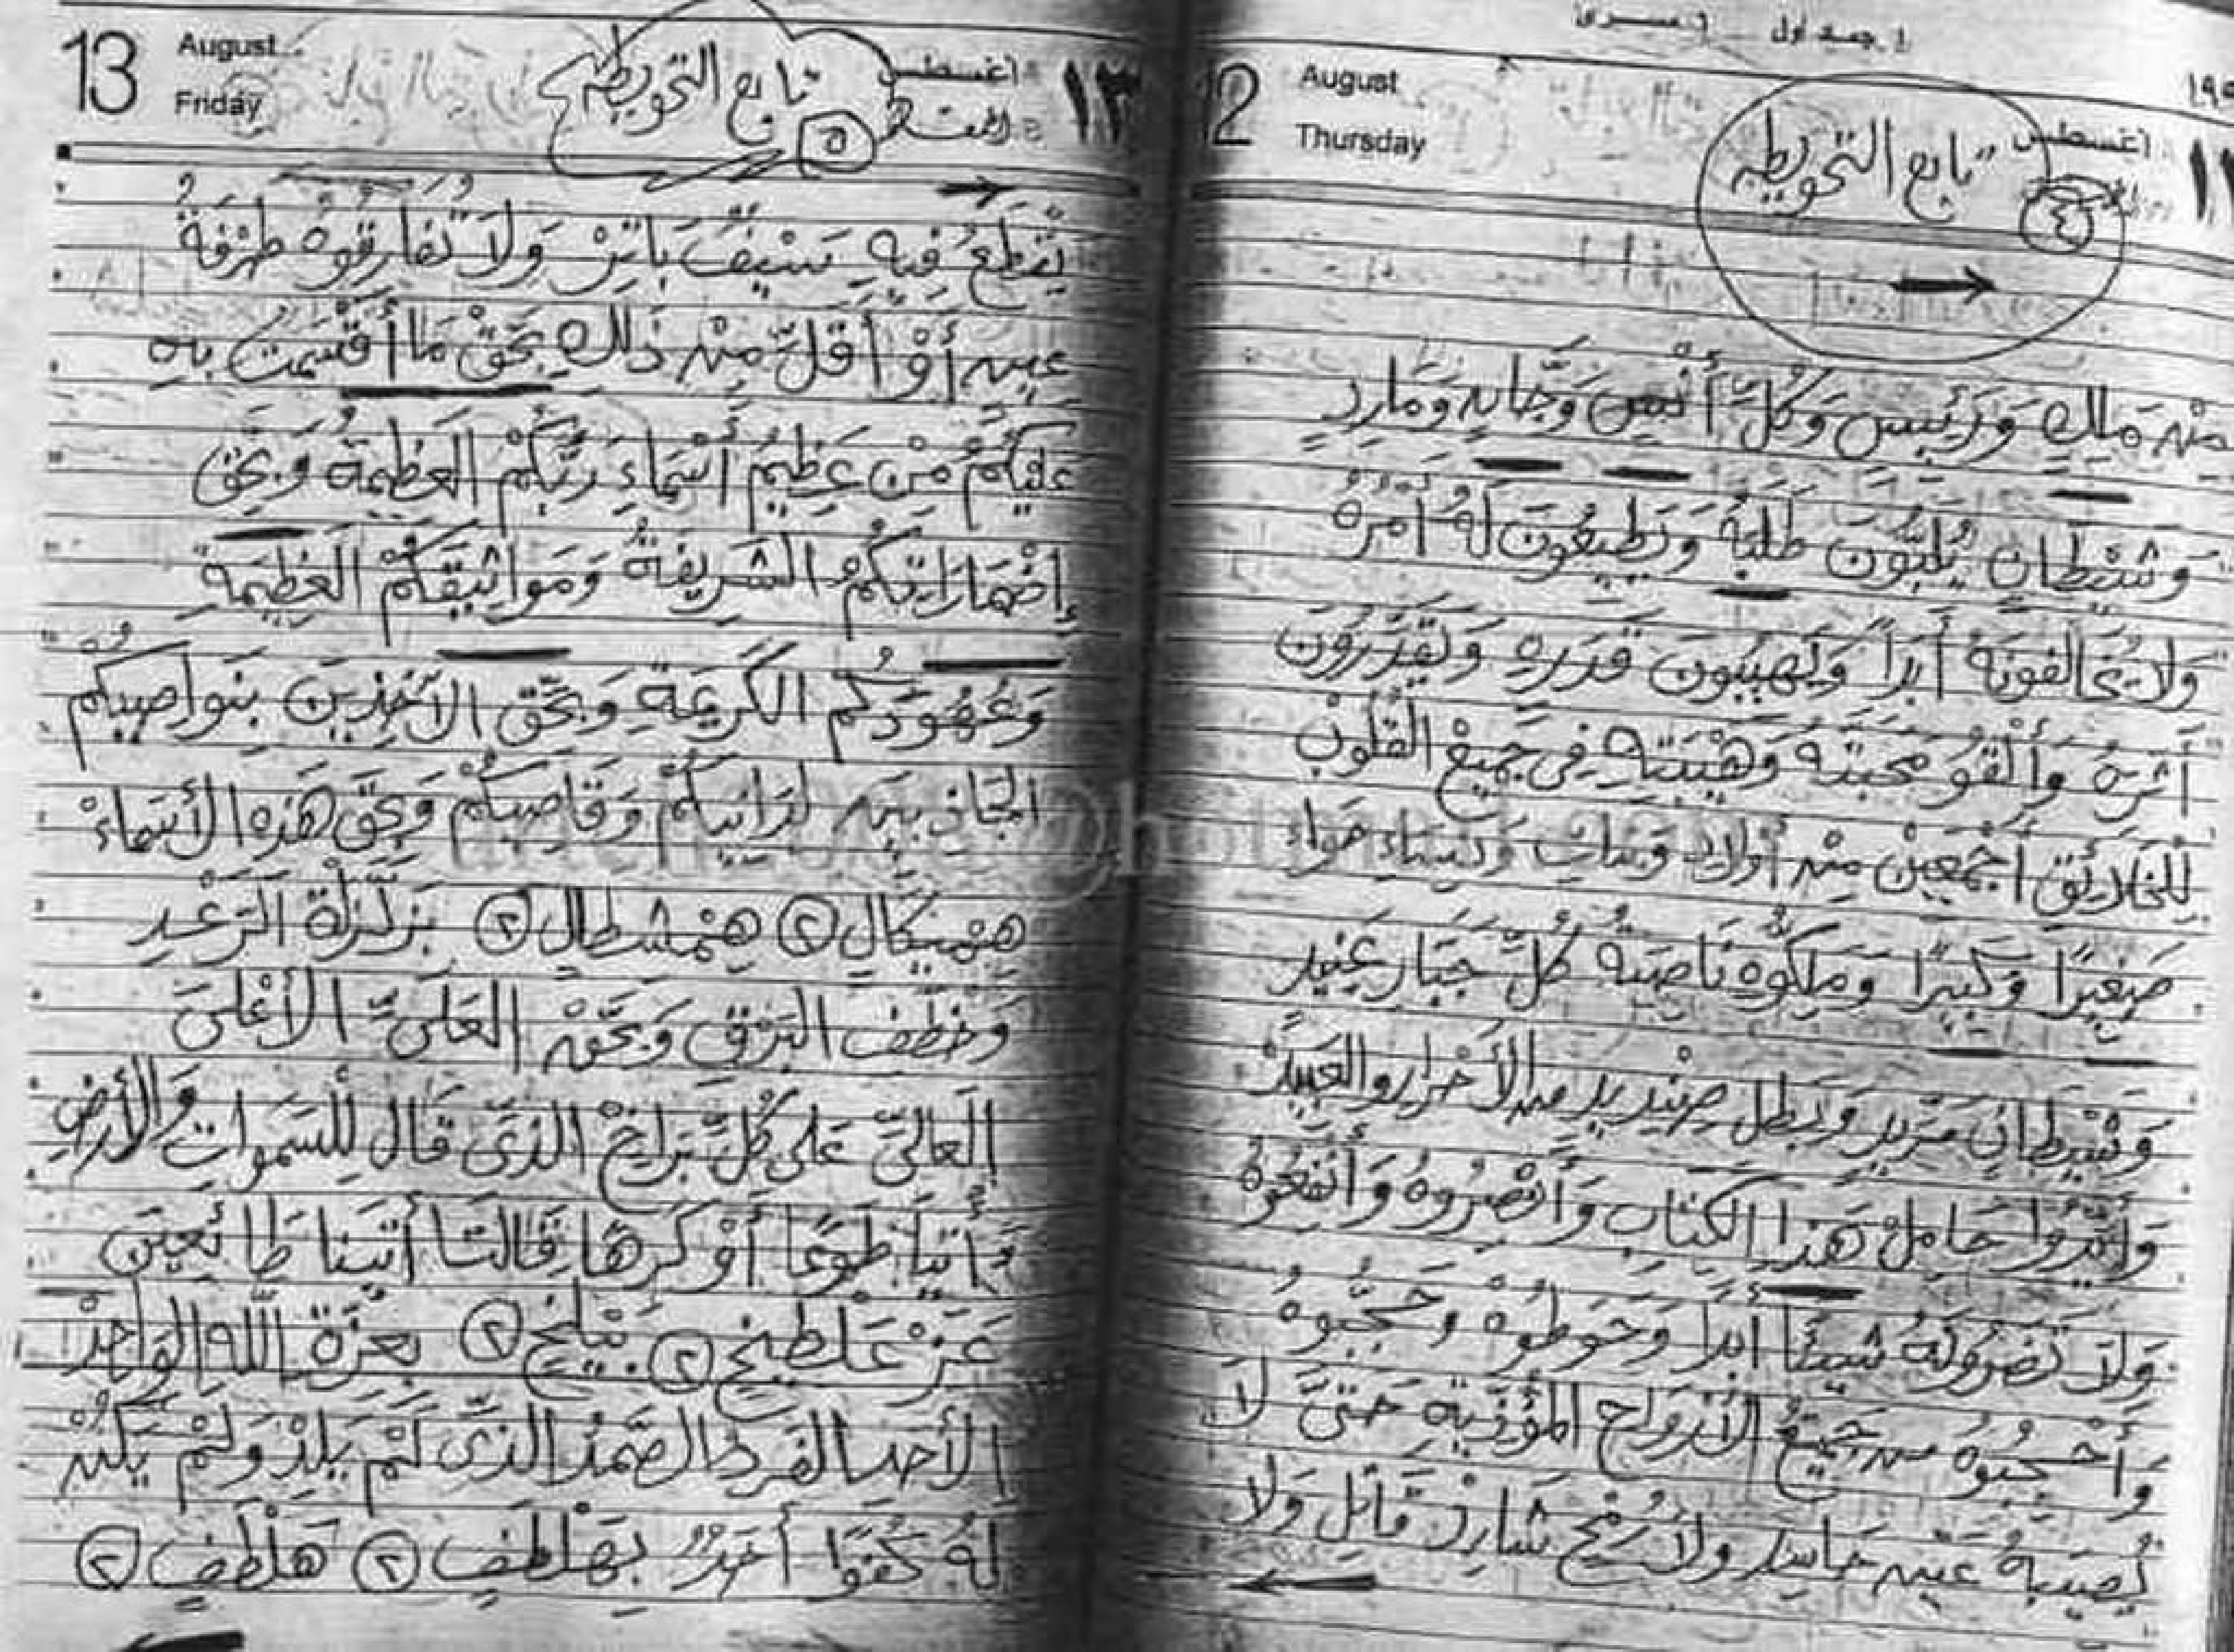 ١ جمـاد أول ٦ مسـرى
12 August Thursday أغسطس
تابع التحويطه
٤
مِنْ مَلِكٍ وَرَئِيسٍ وَكُلَّ أَنْسٍ وَجَانٍ وَمَارِدٍ
وَشَيْطَانٍ يُلَبُّونَ طَلَبَهُ وَيَطِيعُونَ لَهُ أَمْرَهُ
وَلَا يُخَالِفُونَهُ أَبَداً وَيَهِيبُونَ قَدَرَهُ وَيَقْدِرُونَ
أَثَرَهُ وَأَلْقُو مَحَبَّتَهُ وَهَيْبَتَهُ فِي جَمِيعْ الْقُلُوبْ
لِلْخَلَائِقْ أَجْمَعِينْ مِنْ أَوْلَادِ وَبَنَاتِ وَنِسَاءِ حَوَاءِ
صَغِيرًا وَكَبِيرًا وَمَلِّكُوهُ نَاصِيَةُ كُلَّ جَبَّارٍ عَنِيدٍ
وَشَيْطَانٍ مَرِيدٍ وَبَطَلٍ صِنْدِيدٍ مِن الْأَحْرَارِ وَالْعَبِيدْ
حَامِلْ هَذَا الْكِتَابِ وَأَنْصُرُوهُ
وَلَا تَضُرُّولَهُ شَيْئًا أَبَدًا وَحَوِّطُوهُ وَحَجِّبُوهُ
وَأَحْجِبُوهُ مِن جَمِيعُ الْأَرْوَاحِ الْمُؤْذِيَةِ حَتَّىَ لَا
تُصِيبَهُ عَيْن حَاسِدٍ وَلَا رُمْحُ شَارِدْ قَاتِلْ وَلَا
13 August Friday أغسطس ١٣
تابع التحويطه
٥
يَقْطَعُ فِيهِ سَيْفُ بَاتِرْ وَلَا تُفَارِقُوهُ طَرْفَةُ
عَيْن أَوْ أَقَلَّ مِنْ ذَلِكِ بِحَقِّ مَا أَقْسَمْتُ بِهِ
عَلَيْكُمْ مِنْ عَظِيمْ أَسْمَاءِ رَبِّكُمْ الْعَظِيمَةُ وَبِحَقِ
إِضْمَارَاتِكُمْ الشَرِيفَةُ وَمَوَاثِيقَكُمْ الْعَظِيمَةِ
وَعُهُودَكُم الْكَرِيمَةِ وَبِحَق الْأَخِذِينَ بِنَوَاصِيكُمْ
الْجَاذِبِين لِدَانِيكُمْ وَقَاصِيكُمْ وَبِحَقِ هَذِهِ الْأَسْمَاءْ
هَمْيكَالٍ ٢ هَمْشَطَالٍ ٢ بِزَلْزَلَةْ الْرَعْدِ
وَخَطْفِ الْبَرْقِ وَبِحَقْ الْعَلِيِّ الْأَعْلَىَ
الْعَالِيِّ عَلَى كُلِّ بَرَاخٍ الْذِي قَالَ لِلْسَمَوَاتِ وَالْأَرْضِ
أَتِيَا طَوْعًا أَوْ كَرْهًا قَالَتَا أَتَيْنَا طَائِعِينَ
بِعِزَّةِ اللهِ الْوَاحِدْ
الْأَحَد الفَرْد الصَّمَدْ الْذِّي لَمْ يَلِدْ وَلَمْ يَكُنْ
لَهُ كُفُوًا أَحَدٌ بِهَلْطَفٍ ٢ هَلْطَفٍ ٢